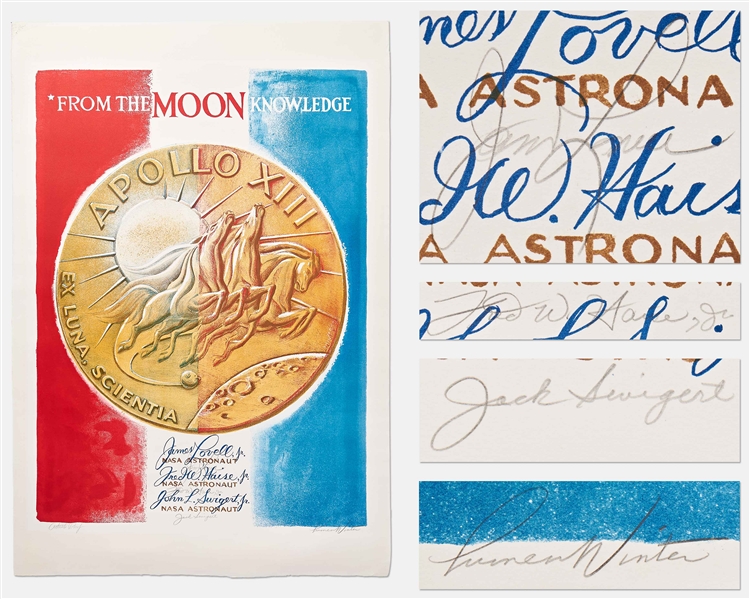 *FROM THE MOON KNOWLEDGE
APOLLO XIII
EX LUNA, SCIENTIA
James Lovell, Jr.
NASA ASTRONAUT
Fred W. Haise, Jr.
NASA ASTRONAUT
John L. Swigert, Jr.
NASA ASTRONAUT
Jack Swigert
Lumen Winter
mes Lovell
A ASTRONA
Jim Lovell
d W. Hais
A ASTRONA
Fred W. Haise, Jr.
Jack Swigert
Lumen Winter